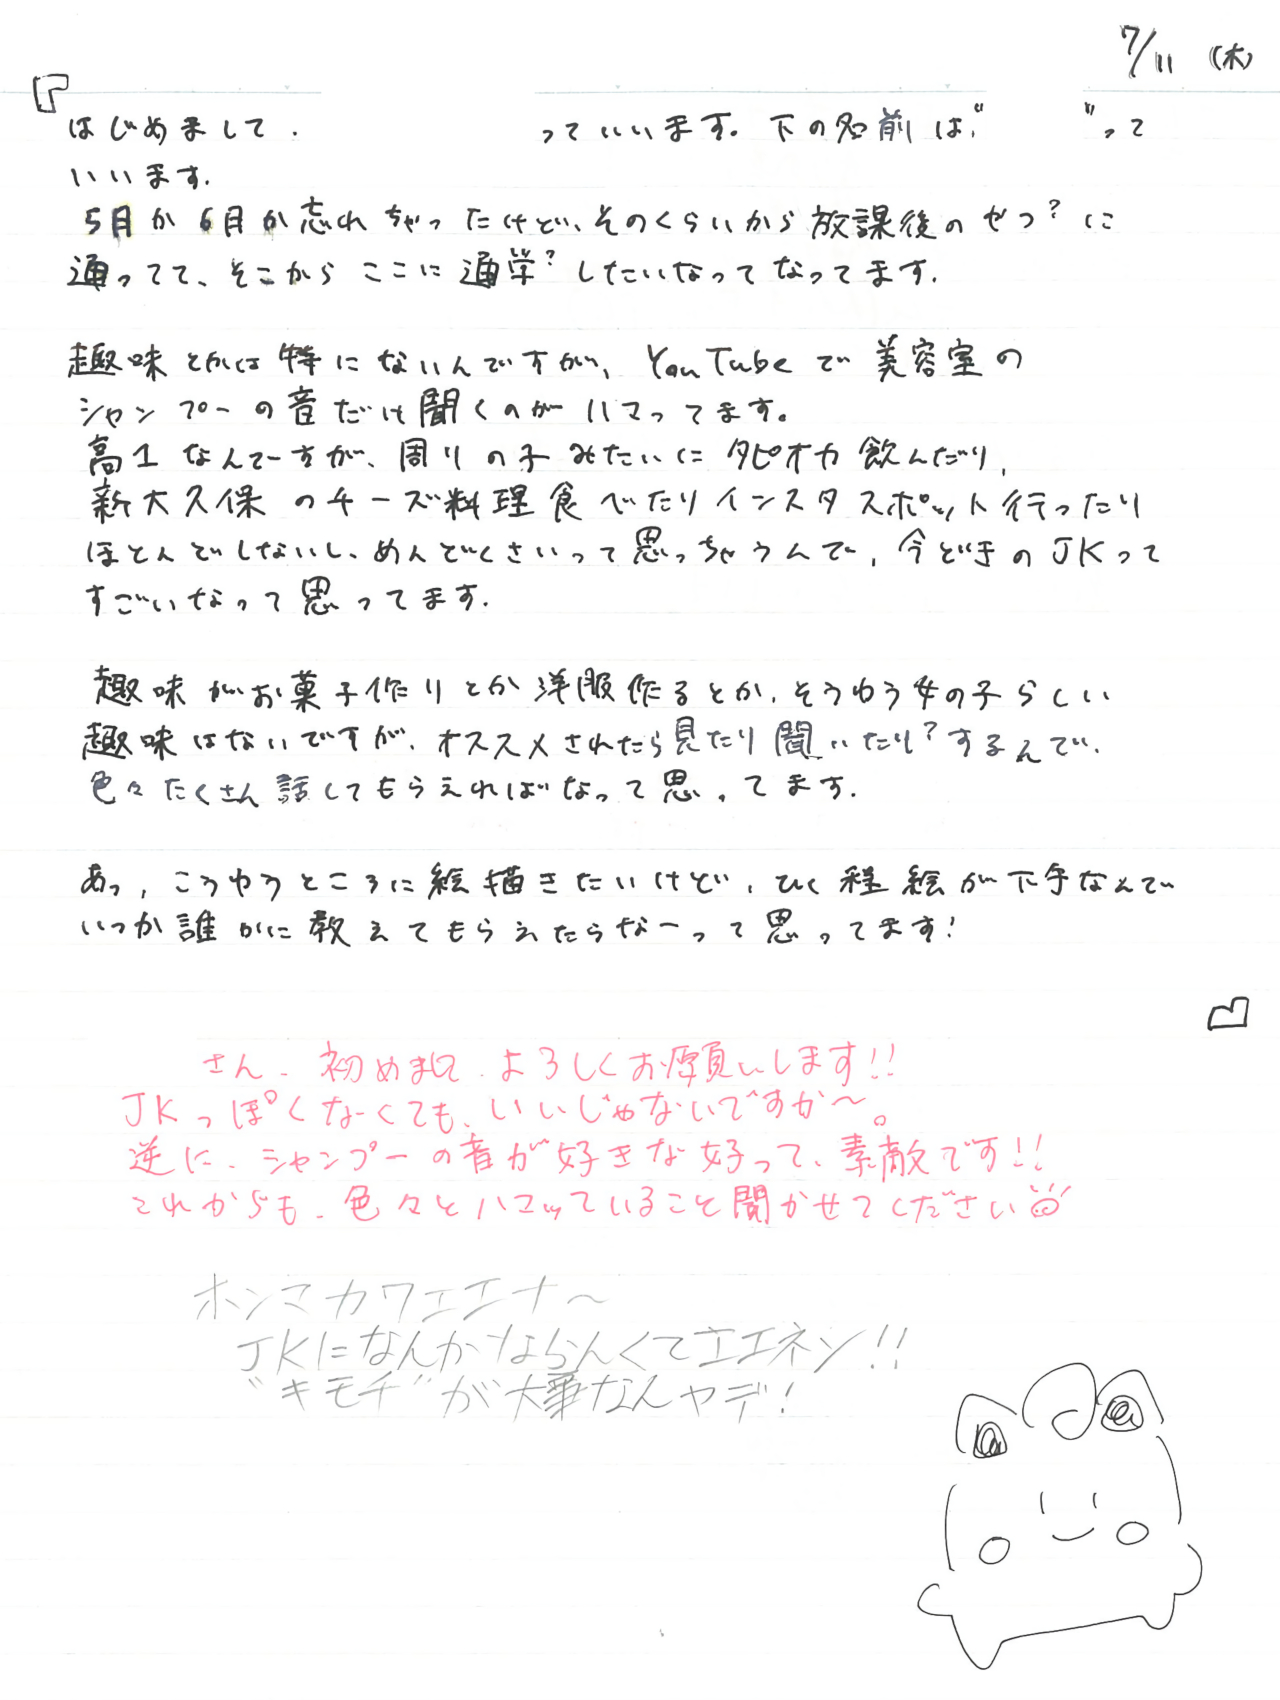 7/11 (木)
『
はじめまして. っていいます。下の名前は、“ ”って
いいます.
5月か6月か忘れちゃったけど、そのくらいから放課後のやつ?に
通ってて、そこからここに通学?したいなってなってます.
趣味とかは特にないんですが、YouTubeで美容室の
シャンプーの音だけ聞くのがハマってます。
高1なんですが、周りの子みたいにタピオカ飲んだり、
新大久保のチーズ料理食べたりインスタスポット行ったり
ほとんどしないし、めんどくさいって思っちゃうんで、今どきのJKって
すごいなって思ってます.
趣味がお菓子作りとか洋服作るとか、そうゆう女の子らしい
趣味はないですが、オススメされたら見たり聞いたり?するんで、
色々たくさん話してもらえればなって思ってます.
あっ、こうゆうところに絵描きたいけど、ひく程絵が下手なんで
いつか誰かに教えてもらえたらなーって思ってます!
』
さん、初めまして、よろしくお願いします!!
JKっぽくなくても、いいじゃないですか〜。
逆に、シャンプーの音が好きな好って、素敵です!!
これからも、色々とハマッていること聞かせてください
ホンマカワエエナ〜
JKになんかならんくてエエネン!!
“キモチ”が大事なんヤデ!